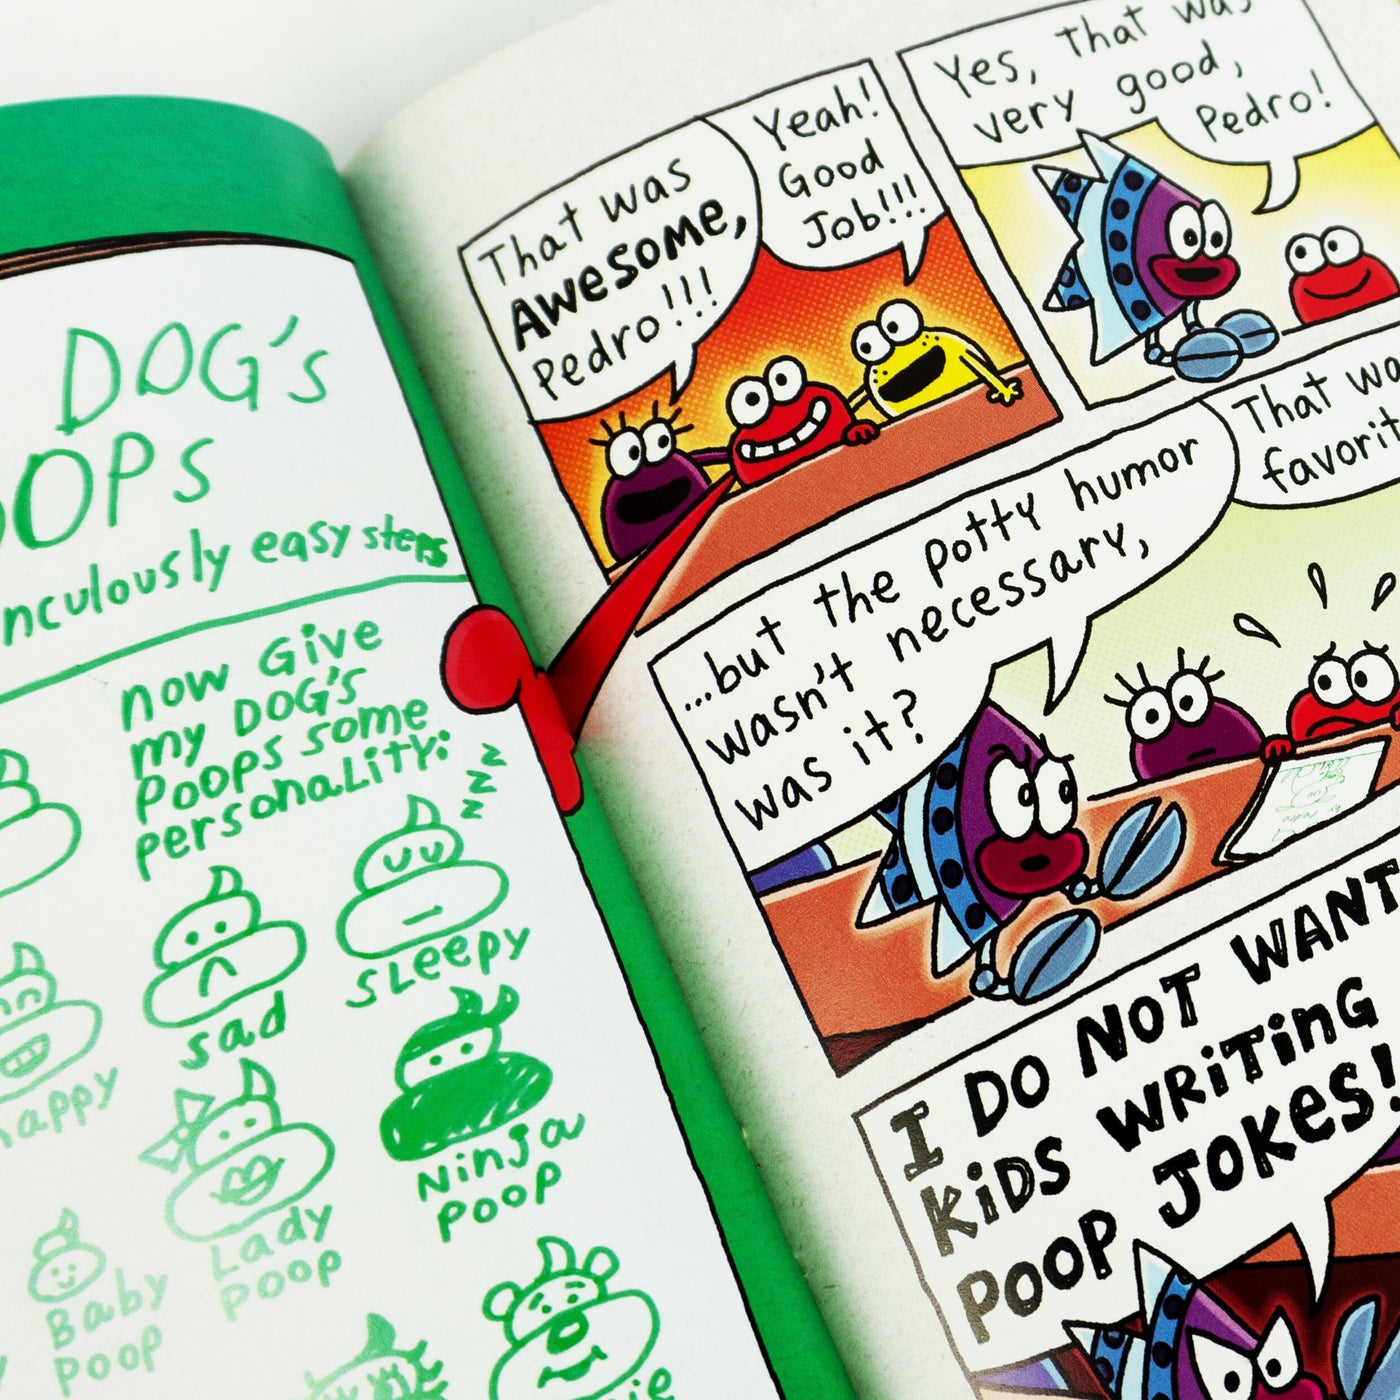 DOG's
OOPs
nculously easy steps
now Give
my DOG's
Poops some
personaLiTy:
zzzz
sad
sleepy
happy
Lady
poop
Ninja
poop
Baby
poop
That was
AWesome,
Pedro!!!
Yeah!
Good
Job!!!
Yes, that was
very good,
Pedro!
...but the potty humor
wasn't necessary,
was it?
That wa
favorit
I DO NOT WANT
KiDS WRiTinG
POOP JOKes!